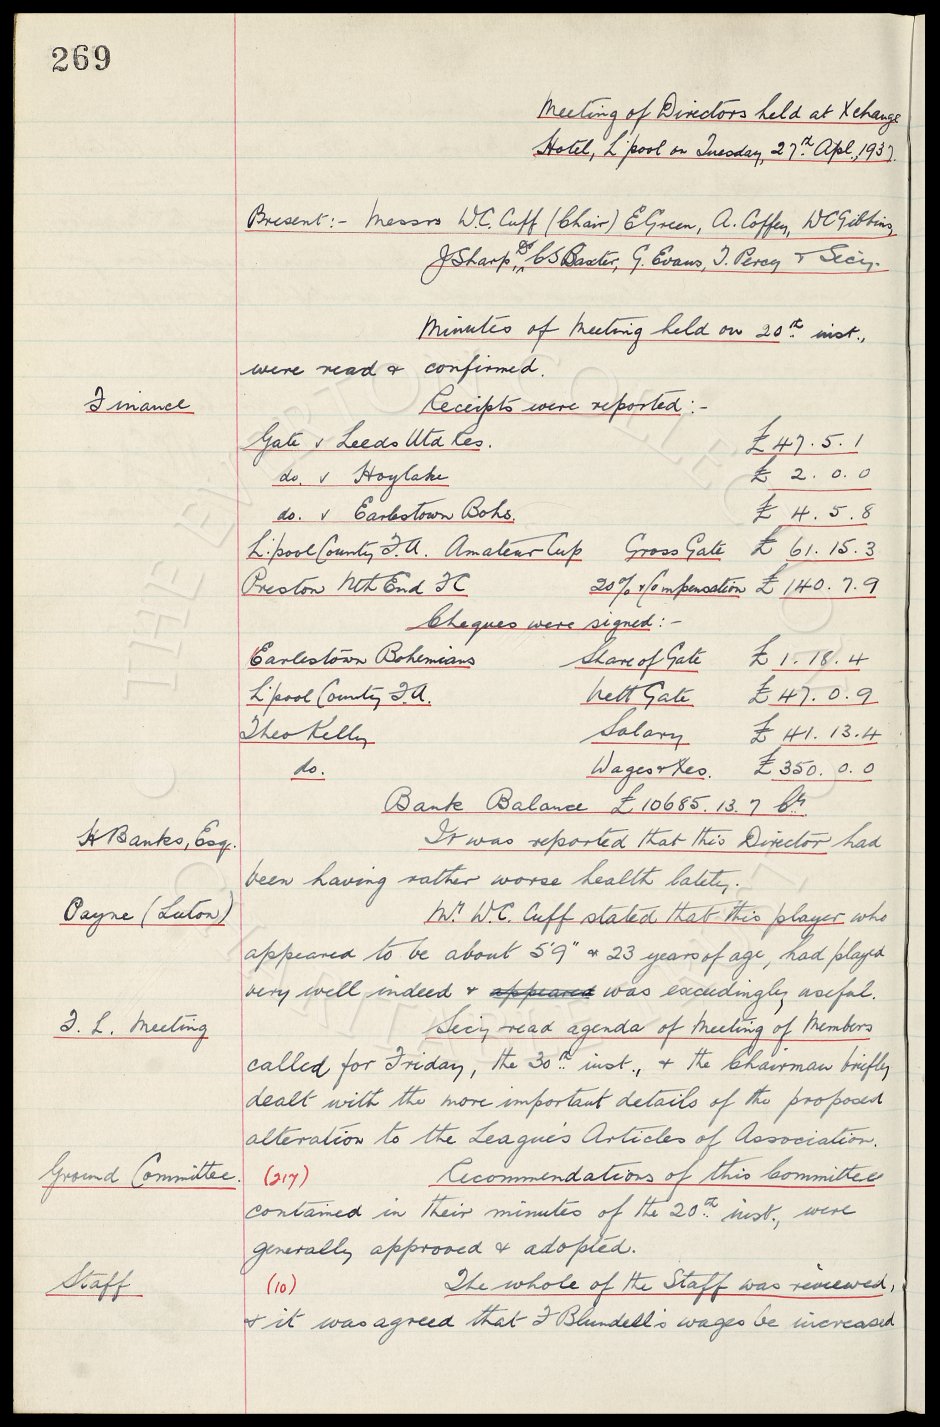 269
Meeting of Directors held at Xchange
Hotel, L'pool on Tuesday, 27th Apl., 1937.
Present:- Messrs W.C. Cuff (Chair) E Green, A. Coffey, W C Gibbins,
J Sharp, Dr C S Baxter, G. Evans, T. Percy & Secy.
Minutes of Meeting held on 20th inst.,
were read & confirmed.
Finance Receipts were reported:-
Gate v Leeds Utd Res. £47.5.1
do. v Hoylake £ 2.0.0
do. v Earlestown Bohs. £ 4.5.8
L'pool County F.A. Amateur Cup Gross Gate £ 61.15.3
Preston Nth End FC 20% & Compensation £ 140.7.9
Cheques were signed:-
Earlestown Bohemians Share of Gate £ 1.18.4
L'pool County F.A. Nett Gate £ 47.0.9
Theo Kelly Salary £ 41.13.4
do. Wages & Xes. £350.0.0
Bank Balance £10685.13.7 Cr.
H Banks, Esq. It was reported that this Director had
been having rather worse health lately.
Payne (Luton) Mr. W.C. Cuff stated that this player who
appeared to be about 5'9" & 23 years of age, had played
very well indeed & appeared was exceedingly useful.
F. L. Meeting Secy read agenda of Meeting of Members
called for Friday, the 30th inst., & the Chairman briefly
dealt with the more important details of the proposed
alteration to the League's Articles of Association.
Ground Committee. (217) Recommendations of this Committee
contained in their minutes of the 20th inst., were
generally approved & adopted.
Staff (10) The whole of the Staff was reviewed,
& it was agreed that F Blundell's wages be increased
THE EVERTON COLLECTION
CHARITABLE TRUST